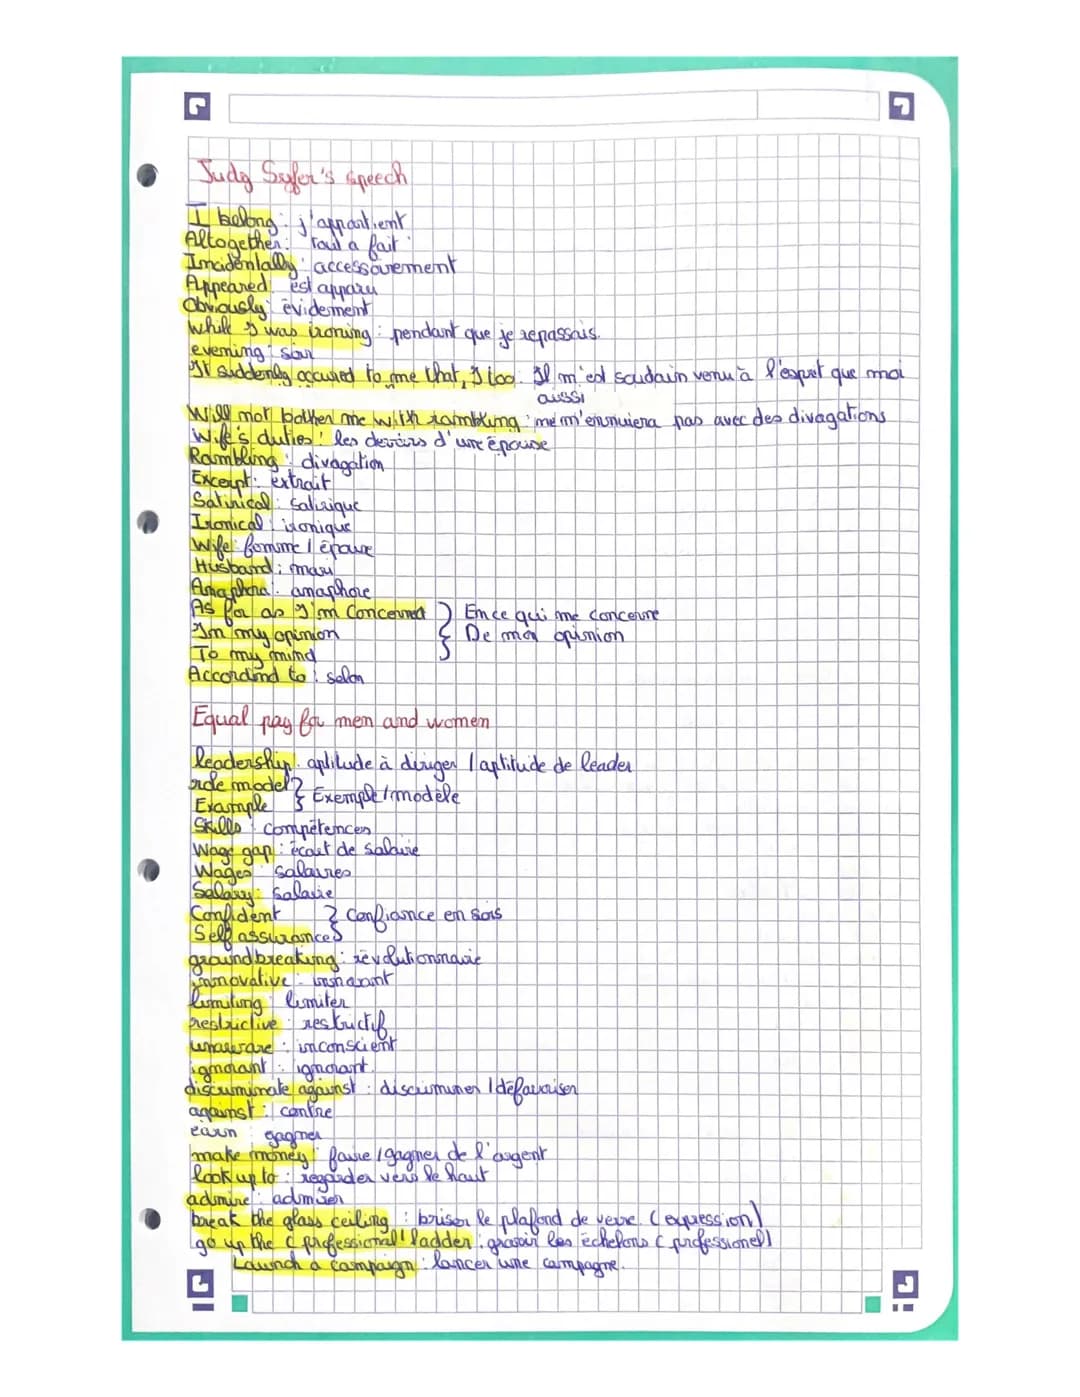 Judy Syfer's speech
I belong : j'appartient
Altogether : Tout à fait
Incidentally : accessoirement
Appeared : est apparu
Obviously : évidement
While I was ironing : pendant que je repassais.
evening : soir
It suddenly occured to me that, I too : Il m'est soudain venu à l'esprit que moi
aussi
Will not bother me with rambling : ne m'ennuiera pas avec des divagations
Wife's duties : les devoirs d'une épouse
Rambling : divagation
Excerpt : extrait
Satirical : satirique
Ironical : ironique
Wife : femme / épouse
Husband : mari
Anaphora : anaphore
As far as I'm Concerned } En ce qui me concerne
In my opinion } De mon opinion
To my mind
Accordind to : selon
Equal pay for men and women
leadership : aptitude à diriger / aptitude de leader
role model } Exemple / modèle
Example
Skills : compétences
Wage gap : écart de salaire
Wages : salaires
Salary : salaire
Confident } Confiance en sois
Self assurance
groundbreaking : révolutionnaire
innovative : innovant
limiting : limiter
restrictive : restrictif
unaware : inconscient
ignorant : ignorant.
discriminate against : discriminer / défavoriser
against : contre
earn : gagner
make money : faire / gagner de l'argent
look up to : regarder vers le haut
admire : admirer
break the glass ceiling : briser le plafond de verre. (expression)
go up the (professional) ladder : gravir les échelons (professionel)
Launch a campaign : lancer une campagne.